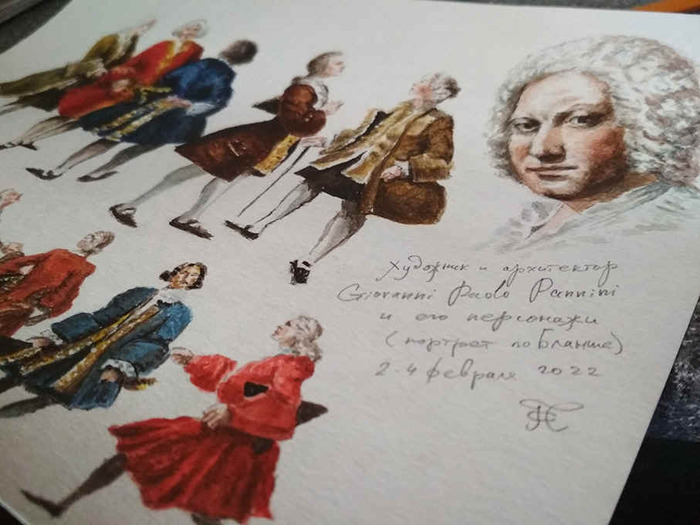 Художник и архитектор
Giovanni Paolo Pannini
и его персонажи
(портрет по Бланше)
2-4 февраля 2022